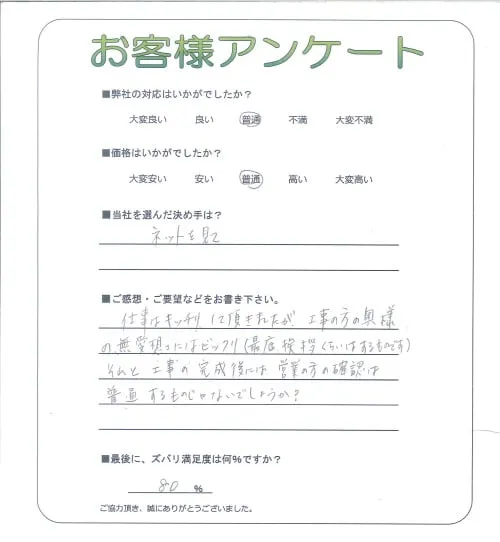 お客様アンケート
■弊社の対応はいかがでしたか？
大変良い 良い 普通 不満 大変不満
■価格はいかがでしたか？
大変安い 安い 普通 高い 大変高い
■当社を選んだ決め手は？
ネットを見て
■ご感想・ご要望などをお書き下さい。
仕事はキッチリして頂きれたが 工事の方の奥様
の無愛想さにはビックリ(最低挨拶くらいはするものです)
それと 工事の完成後には営業の方の確認は
普通するものじゃないでしょうか？
■最後に、ズバリ満足度は何%ですか？
80 %
ご協力頂き、誠にありがとうございました。